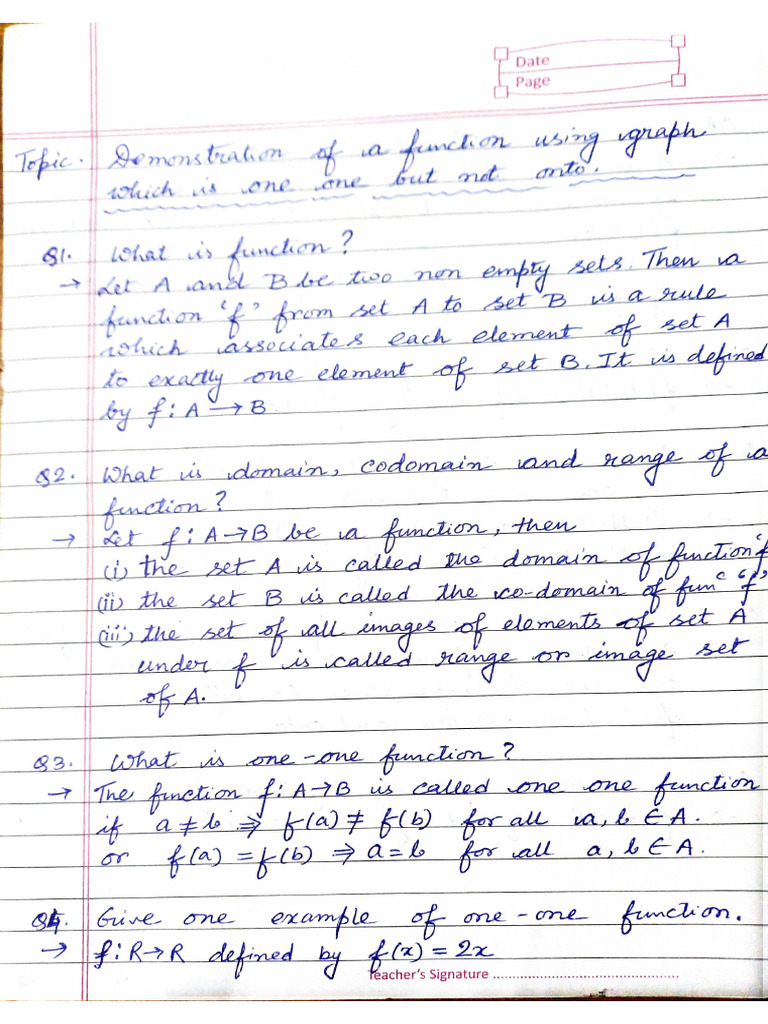 Date
Page
Topic. Demonstration of a function using graph
which is one one but not onto.
Q1. What is function?
→ Let A and B be two non empty sets. Then a
function 'f' from set A to set B is a rule
which associates each element of set A
to exactly one element of set B. It is defined
by f : A → B
Q2. What is domain, codomain and range of a
function?
→ Let f : A → B be a function, then
(i) the set A is called the domain of function 'f
(ii) the set B is called the co-domain of funᶜ 'f'
(iii) the set of all images of elements of set A
under f is called range or image set
of A.
Q3. What is one-one function?
→ The function f : A → B is called one one function
if a ≠ b ⇒ f(a) ≠ f(b) for all a, b ∈ A.
or f(a) = f(b) ⇒ a = b for all a, b ∈ A.
Q4. Give one example of one-one function.
→ f : R → R defined by f(x) = 2x
Teacher's Signature ................................................